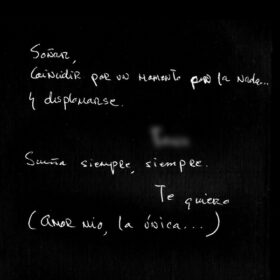 Soñar,
Coincidir por un momento por la Nada...
y desplomarse.
Sueña siempre, siempre.
Te quiero
(Amor mío, la única...)